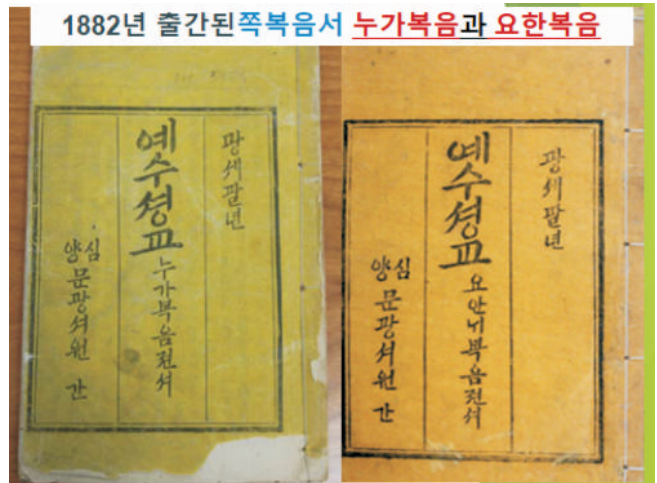 1882년 출간된쪽복음서 누가복음과 요한복음
광셰팔년
예수셩교누가복음젼셔
심양문광셔원 간
광셰팔년
예수셩교요안ᄂᆡ복음젼셔
심양문광셔원 간